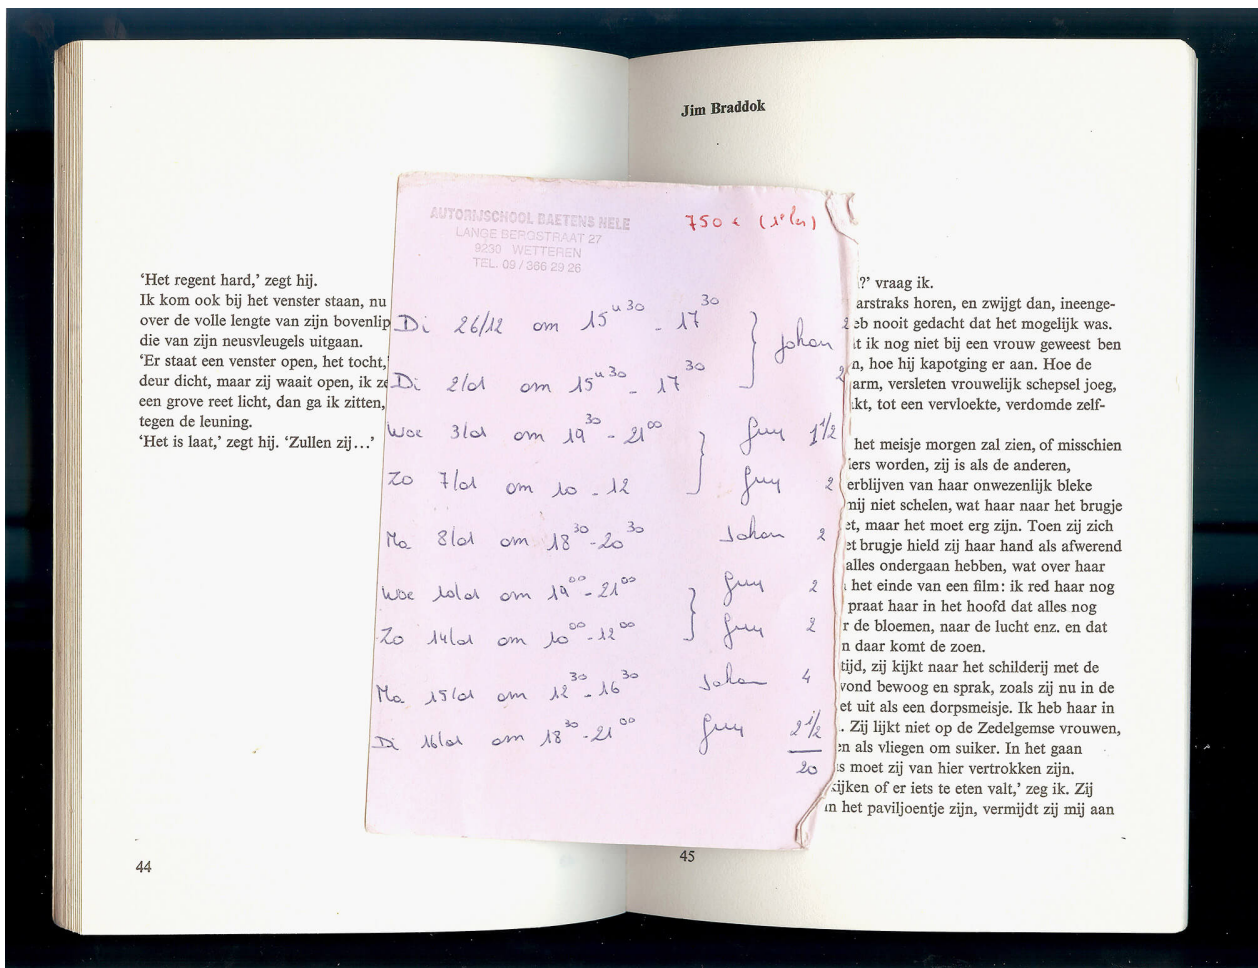 'Het regent hard,' zegt hij.
Ik kom ook bij het venster staan, nu
over de volle lengte van zijn bovenlip
die van zijn neusvleugels uitgaan.
'Er staat een venster open, het tocht,'
deur dicht, maar zij waait open, ik ze
een grove reet licht, dan ga ik zitten,
tegen de leuning.
'Het is laat,' zegt hij. 'Zullen zij...'
44
AUTORIJSCHOOL BAETENS NELE
LANGE BERGSTRAAT 27
9230 WETTEREN
TEL. 09 / 366 29 26
750 € (1e les)
Di 26/12 om 15u30 - 17 30 } Johan 2
Di 2/01 om 15u30 - 17 30 2
Woe 3/01 om 19 30 - 21 00 } Guy 1 1/2
Zo 7/01 om 10 - 12 Guy 2
Ma 8/01 om 18 30 - 20 30 Johan 2
Woe 10/01 om 19 00 - 21 00 } Guy 2
Zo 14/01 om 10 00 - 12 00 Guy 2
Ma 15/01 om 12 30 - 16 30 Johan 4
Di 16/01 om 18 30 - 21 00 Guy 2 1/2
20
Jim Braddok
?' vraag ik.
arstraks horen, en zwijgt dan, ineenge-
eb nooit gedacht dat het mogelijk was.
t ik nog niet bij een vrouw geweest ben
n, hoe hij kapotging er aan. Hoe de
arm, versleten vrouwelijk schepsel joeg,
kt, tot een vervloekte, verdomde zelf-
het meisje morgen zal zien, of misschien
iers worden, zij is als de anderen,
erblijven van haar onwezenlijk bleke
mij niet schelen, wat haar naar het brugje
et, maar het moet erg zijn. Toen zij zich
et brugje hield zij haar hand als afwerend
alles ondergaan hebben, wat over haar
het einde van een film: ik red haar nog
praat haar in het hoofd dat alles nog
r de bloemen, naar de lucht enz. en dat
n daar komt de zoen.
tijd, zij kijkt naar het schilderij met de
vond bewoog en sprak, zoals zij nu in de
et uit als een dorpsmeisje. Ik heb haar in
. Zij lijkt niet op de Zedelgemse vrouwen,
en als vliegen om suiker. In het gaan
s moet zij van hier vertrokken zijn.
kijken of er iets te eten valt,' zeg ik. Zij
in het paviljoentje zijn, vermijdt zij mij aan
45